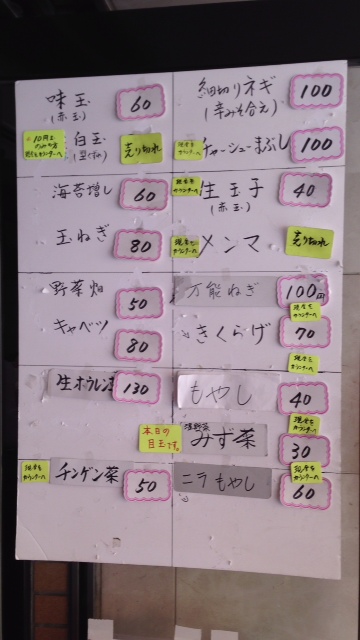 味玉
(赤玉)
60
細切りネギ
(辛みそ合え)
100
白玉
売り切れ
現金を
カウンターへ
チャーシューまぶし
100
海苔増し
60
現金を
カウンターへ
生玉子
(赤玉)
40
玉ねぎ
80
現金を
カウンターへ
メンマ
売り切れ
野菜畑
50
万能ねぎ
100円
現金を
カウンターへ
キャベツ
80
きくらげ
70
現金を
カウンターへ
生ホウレン草
130
もやし
40
現金を
カウンターへ
本日の
目玉です。
みず菜
30
現金を
カウンターへ
現金を
カウンターへ
チンゲン菜
50
ニラもやし
60